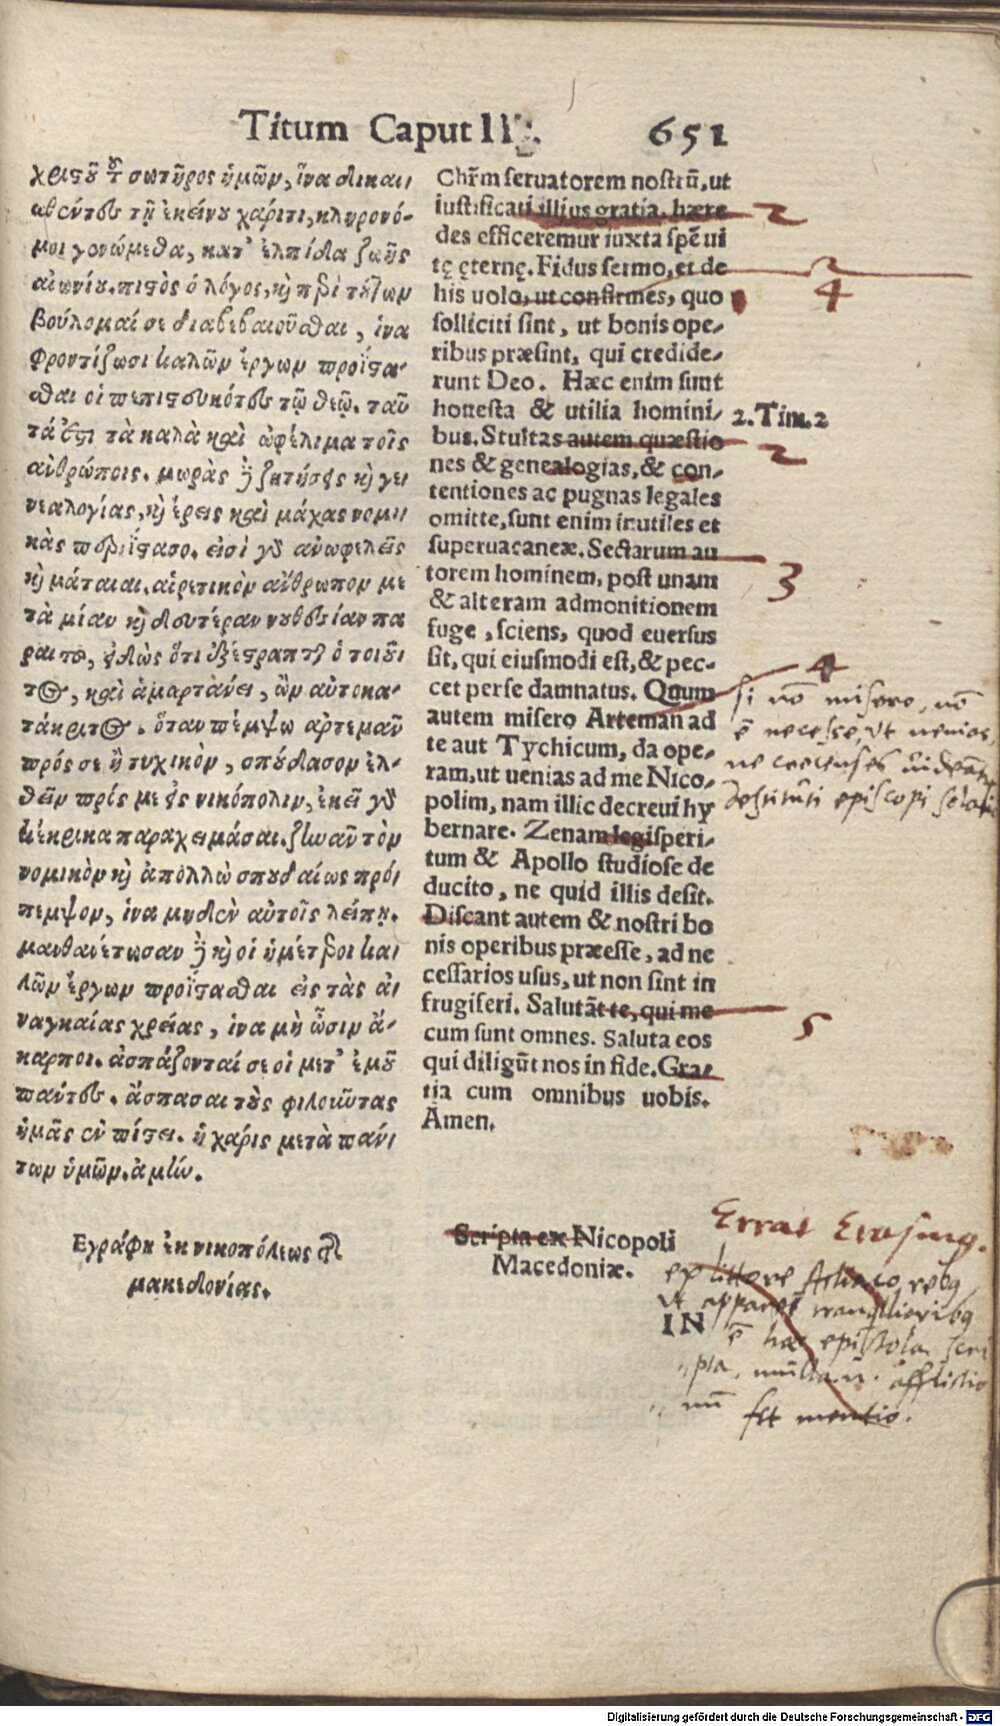 Titum Caput III. 651
χριστοῦ τοῦ σωτῆρος ἡμῶν, ἵνα δικαι
ωθέντες τῇ ἐκείνου χάριτι, κληρονό-
μοι γενώμεθα, κατ' ἐλπίδα ζωῆς
αἰωνίου. πιστὸς ὁ λόγος, καὶ περὶ τούτων
βούλομαί σε διαβεβαιοῦσθαι, ἵνα
φροντίζωσι καλῶν ἔργων προΐστα-
σθαι οἱ πεπιστευκότες τῷ θεῷ. ταῦ
τά ἐστι τὰ καλὰ καὶ ὠφέλιμα τοῖς
ἀνθρώποις. μωρὰς δὲ ζητήσεις καὶ γε
νεαλογίας, καὶ ἔρεις καὶ μάχας νομι
κὰς περιΐστασο. εἰσὶ γὰρ ἀνωφελεῖς
καὶ μάταιαι. αἱρετικὸν ἄνθρωπον με
τὰ μίαν καὶ δευτέραν νουθεσίαν πα
ραιτοῦ, εἰδὼς ὅτι ἐξέστραπται ὁ τοιοῦ
τος, καὶ ἁμαρτάνει, ὢν αὐτοκα-
τάκριτος. ὅταν πέμψω ἀρτεμᾶν
πρός σε ἢ τυχικὸν, σπούδασον ἐλ-
θεῖν πρός με εἰς νικόπολιν, ἐκεῖ γὰρ
κέκρικα παραχειμάσαι. ζηνᾶν τὸν
νομικὸν καὶ ἀπολλὼ σπουδαίως πρό
πεμψον, ἵνα μηδὲν αὐτοῖς λείπῃ.
μανθανέτωσαν δὲ καὶ οἱ ἡμέτεροι κα
λῶν ἔργων προΐστασθαι εἰς τὰς ἀ
ναγκαίας χρείας, ἵνα μὴ ὦσιν ἄ-
καρποι. ἀσπάζονταί σε οἱ μετ' ἐμοῦ
πάντες. ἄσπασαι τοὺς φιλοῦντας
ἡμᾶς ἐν πίστει. ἡ χάρις μετὰ πάν
των ὑμῶν. ἀμήν.
Εγράφη ἐκ νικοπόλεως τῆς
μακεδονίας.
Chr̄m seruatorem nostrū, ut
iustificati illius gratia, hære
des efficeremur iuxta spē ui
tę ęternę. Fidus sermo, et de
his uolo, ut confirmes, quo
solliciti sint, ut bonis ope-
ribus præsint, qui credide-
runt Deo. Hæc enim sunt
honesta & utilia homini-
bus. Stultas autem quæstio
nes & genealogias, & con-
tentiones ac pugnas legales
omitte, sunt enim inutiles et
superuacaneæ. Sectarum au
torem hominem, post unam
& alteram admonitionem
fuge, sciens, quod euersus
sit, qui eiusmodi est, & pec-
cet per se damnatus. Quum
autem misero Arteman ad
te aut Tychicum, da ope-
ram, ut uenias ad me Nico-
polim, nam illic decreui hy
bernare. Zenam legisperi-
tum & Apollo studiose de
ducito, ne quid illis desit.
Discant autem & nostri bo
nis operibus præesse, ad ne
cessarios usus, ut non sint in
frugiferi. Salutāt te, qui me
cum sunt omnes. Saluta eos
qui diligūt nos in fide. Gra-
tia cum omnibus uobis.
Amen.
Scripta ex Nicopoli
Macedoniæ.
2
3
4
2. Tim. 2
2
3
4
si nō misero, nō
ē necesse, ut uenias,
ne cretenses uideāt
destituti episcopi
5
Errat Erasmus.
ex littore Actiaco, rebus
ut apparet tranquillioribus
ē hac epistola scri
pta, nulla n. afflictio
nū fit mentio.
IN
Digitalisierung gefördert durch die Deutsche Forschungsgemeinschaft - DFG